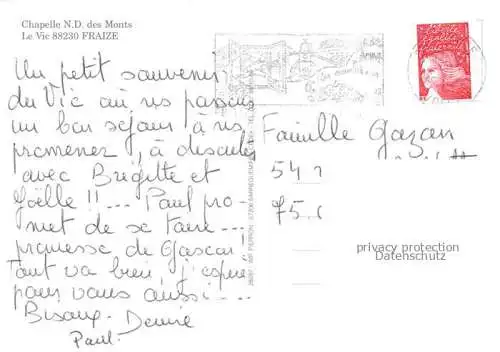 Chapelle N.D. des Monts
Le Vic 88230 FRAIZE
Un petit souvenir
du Vic où ns passons
un bon séjour à ns
promener, à discuter
avec Brigitte et
Joëlle !! --- Paul pro-
met de se taire ---
promesse de Gascon !
Tout va bien, j'espère
pour vous aussi ---
Bisous - Denise
Paul.
Famille Gazan
54
75.0
privacy protection
Datenschutz